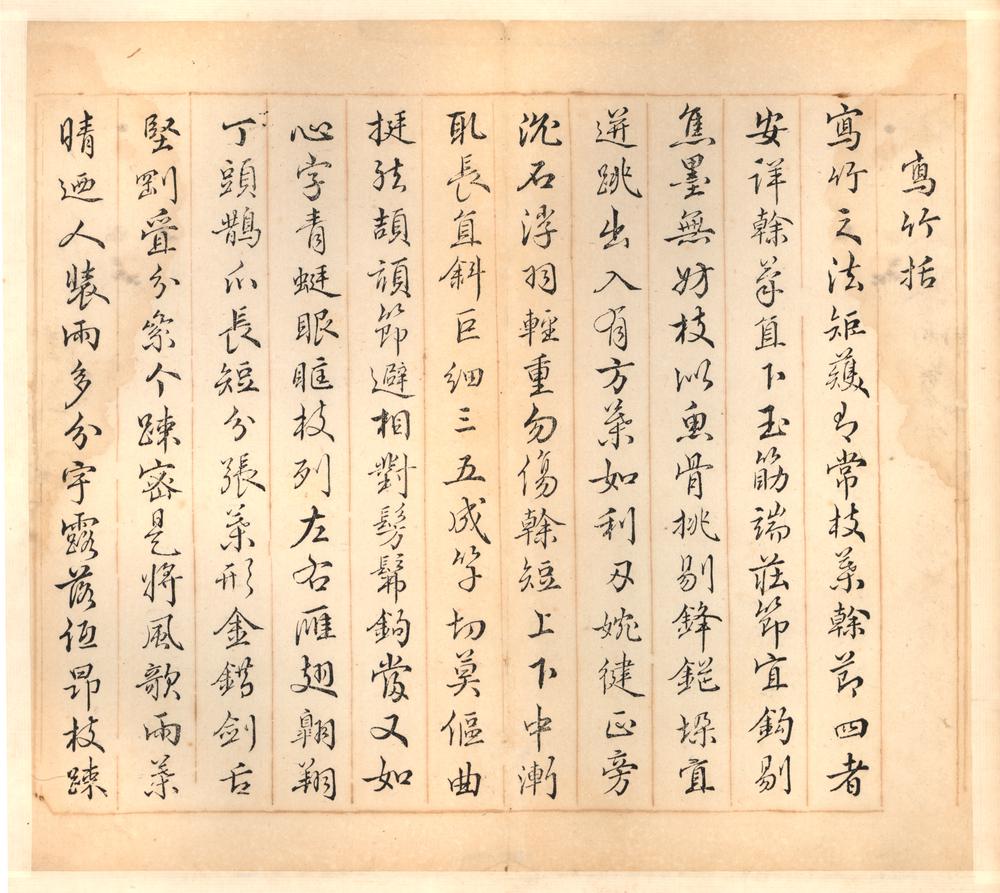 寫竹括
寫竹之法矩矱有常枝葉幹節四者
安詳幹葉直下玉筯端莊節宜鈎剔
焦墨無妨枝似魚骨挑剔鋒鋩垛宜
迸跳出入有方葉如利刃婉健正旁
沈石浮羽輕重勿傷幹短上下中漸
取長直斜巨細三五成竿切莫傴曲
挺然頡頏節避相對髣髴鈎當又如
心字青蜓眼眶枝列左右雁翅翱翔
丁頭鵲爪長短分張葉形金錯劍舌
堅剛疊分縈个疎密是將風欹雨葉
晴迺人裝雨多分字露落低昂枝疎